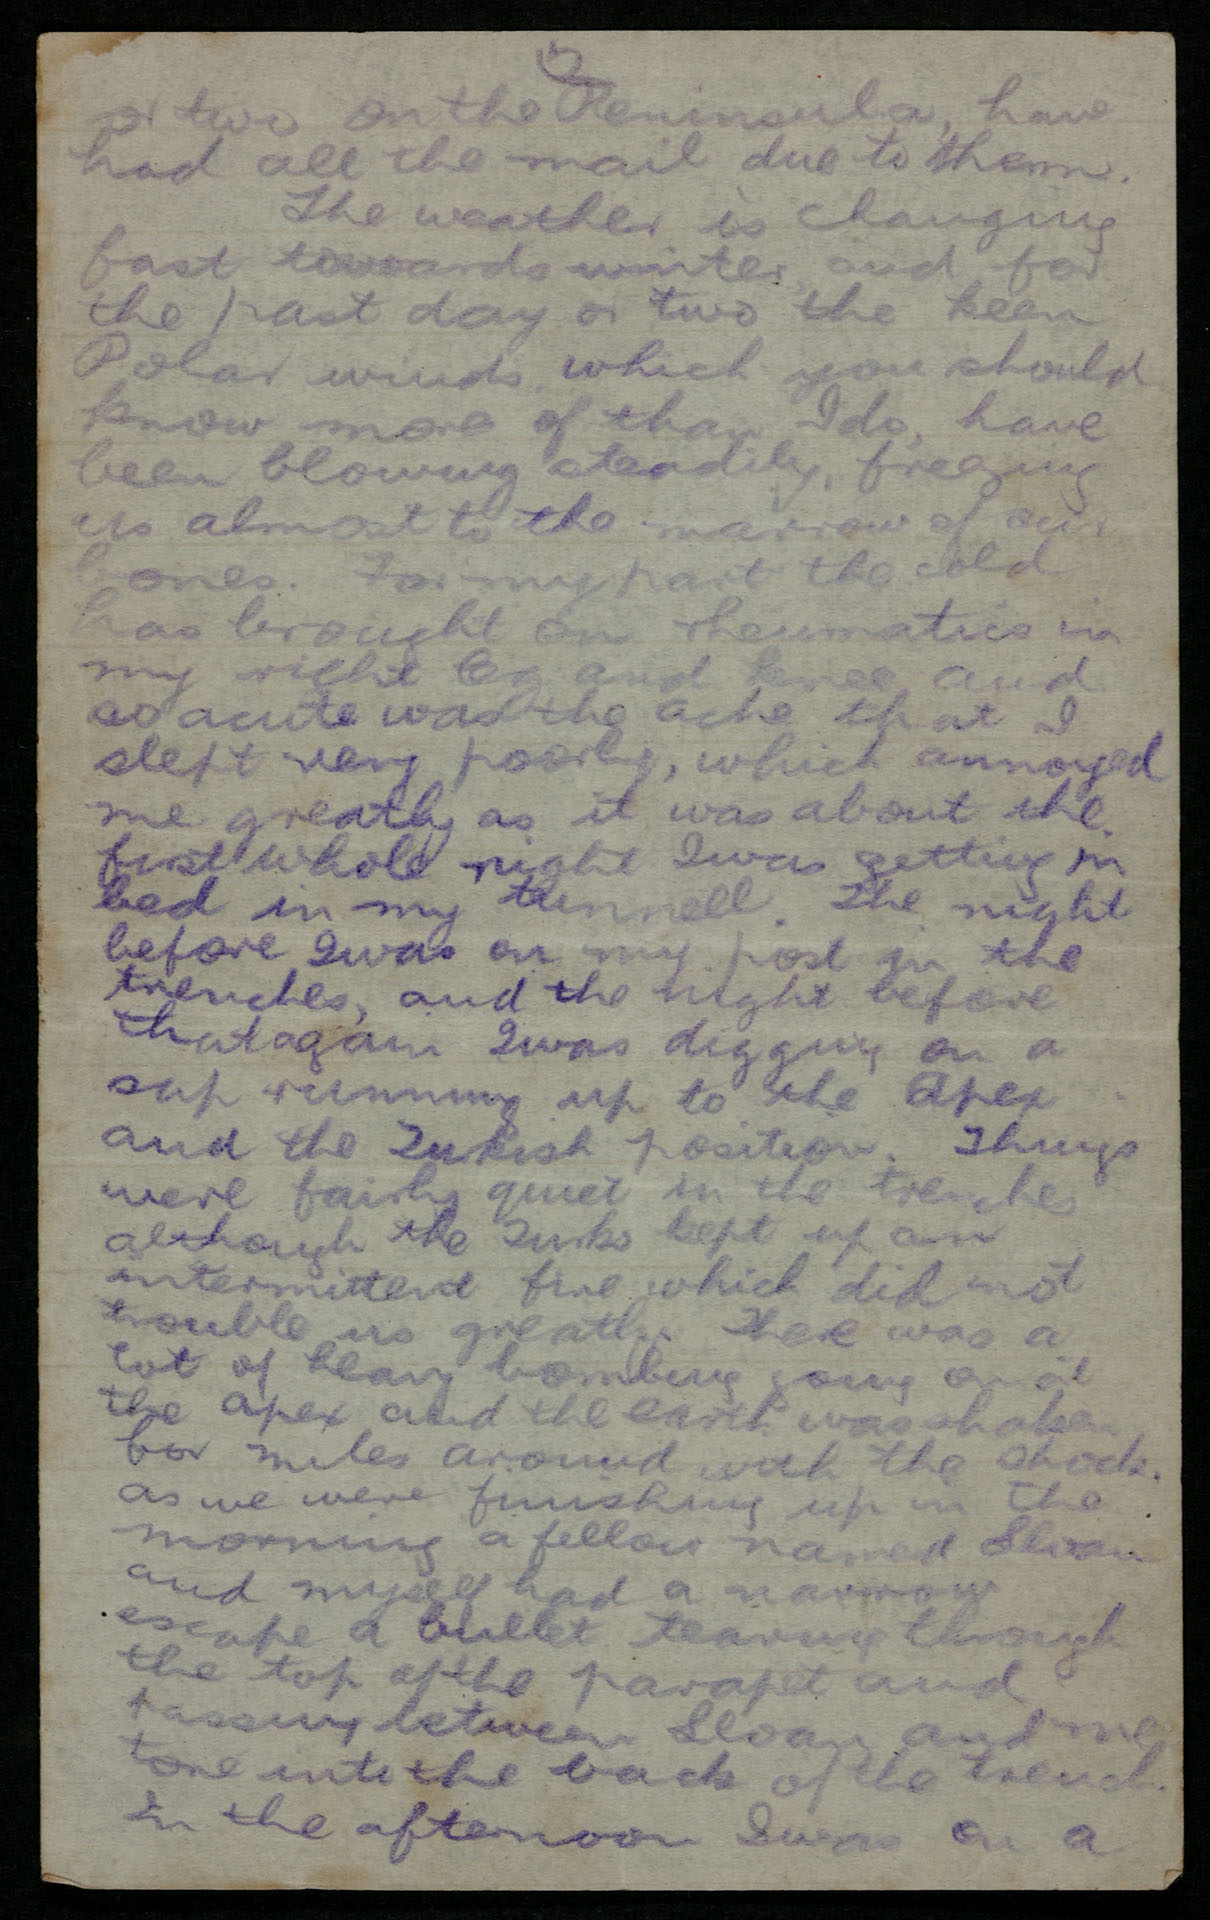 2
or two on the Peninsula, have
had all the mail due to them.
The weather is changing
fast towards winter, and for
the past day or two the keen
Polar winds, which you should
know more of than I do, have
been blowing steadily, freezing
us almost to the marrow of our
bones. For my part the cold
has brought on rheumatics in
my right leg and knee and
so acute was the ache that I
slept very poorly, which annoyed
me greatly as it was about the
first whole night I was getting in
bed in my tunnell. The night
before I was on my post in the
trenches, and the night before
that again I was digging on a
sap running up to the Apex
and the Turkish position. Things
were fairly quiet in the trenches
although the Turks kept up an
intermittent fire which did not
trouble us greatly. There was a
lot of heavy bombing going on at
the apex and the earth was shaken
for miles around with the shock.
as we were finishing up in the
morning a fellow named Sloan
and myself had a narrow
escape a bullet tearing through
the top of the parapet and
passing between Sloan and me
tore into the back of the trench.
In the afternoon I was on a